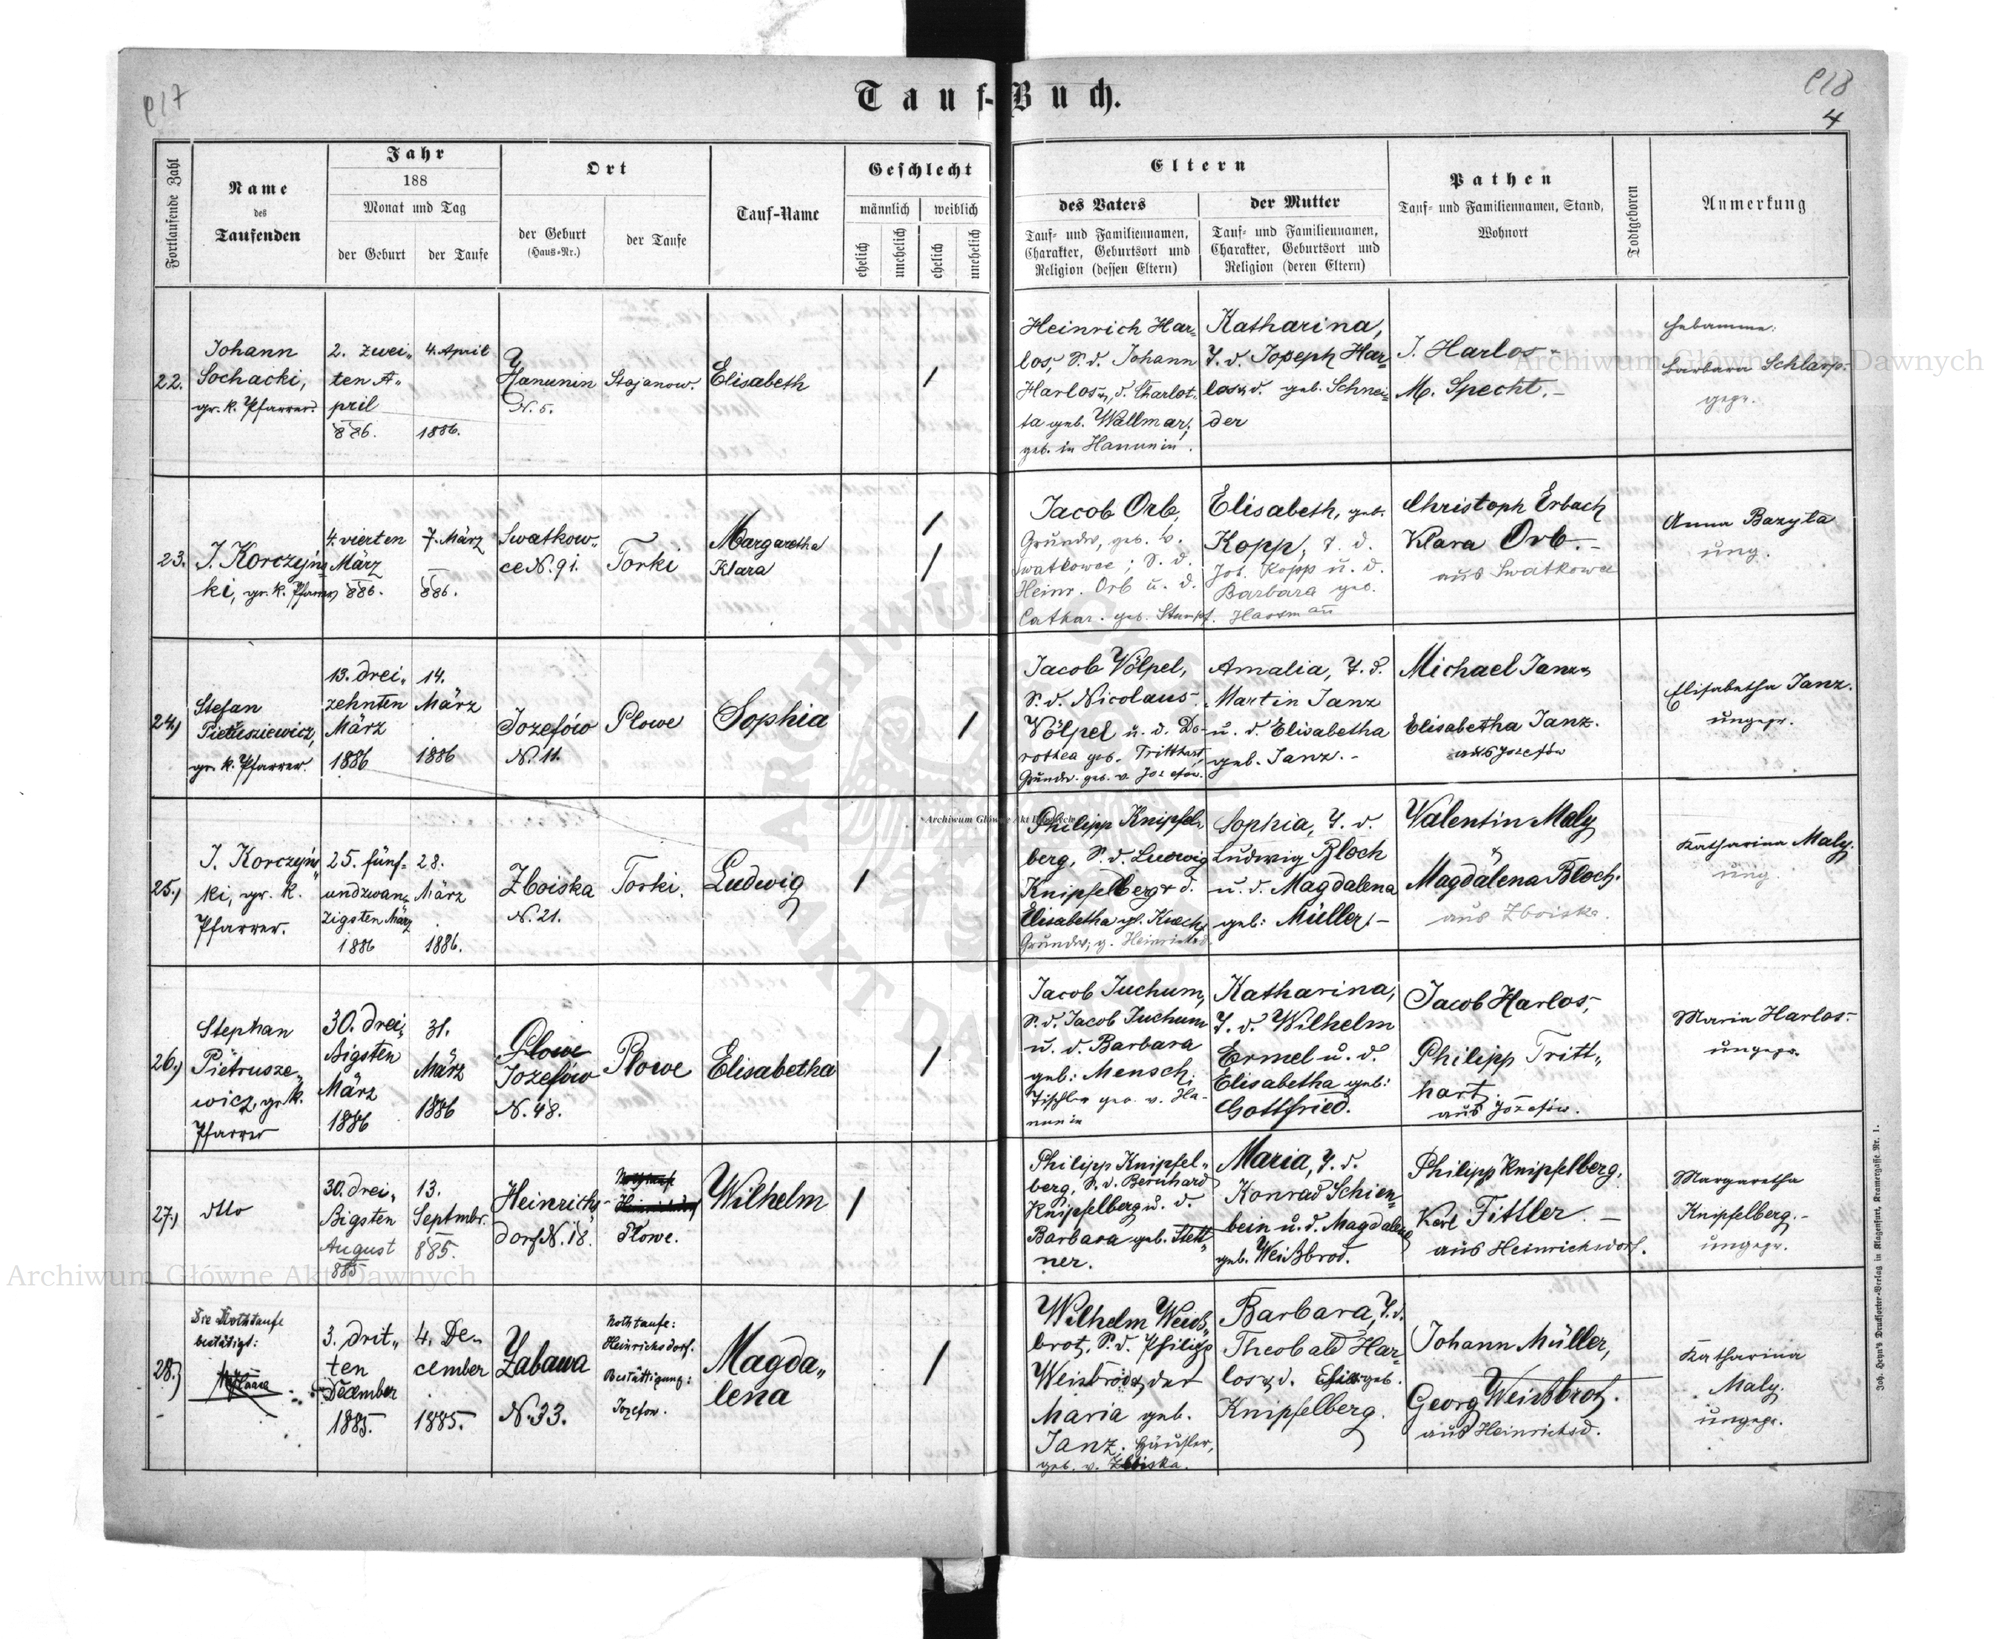 Tauf-Buch.
C17
C18
4
Fortlaufende Zahl
Name
des
Taufenden
Jahr
188
Monat und Tag
der Geburt
der Taufe
Ort
der Geburt
(Haus-Nr.)
der Taufe
Tauf-Name
Geschlecht
männlich
weiblich
ehelich
unehelich
ehelich
unehelich
Eltern
des Vaters
Tauf- und Familiennamen,
Charakter, Geburtsort und
Religion (dessen Eltern)
der Mutter
Tauf- und Familiennamen,
Charakter, Geburtsort und
Religion (deren Eltern)
Pathen
Tauf- und Familiennamen, Stand,
Wohnort
Todtgeboren
Anmerkung
22.
Johann
Sochacki,
gr. k. Pfarrer.
2. zwei-
ten A-
pril
886.
4. April
1886.
Hanunin
N. 5.
Stojanow.
Elisabeth
Heinrich Har-
los, S. d. Johann
Harlos u. d. Charlot-
ta geb. Wallmar,
geb. in Hanunin.
Katharina,
T. d. Joseph Har-
los u. d. geb. Schnei-
der
J. Harlos-
M. Specht.-
Hebamme:
Barbara Schlarp.
gepr.
23.
J. Korczyńs-
ki, gr. k. Pfarrer
4. vierten
März
886.
7. März
886.
Swatkow-
ce N. 91.
Torki
Margaretha
Klara
Jacob Orb,
Grundw, geb. v.
Swatkowce; S. d.
Heinr. Orb u. d.
Cathar. geb. Stumpf.
Elisabeth, geb.
Kopp, T. d.
Jos. Kopp u. d.
Barbara geb.
Christoph Erbach
Klara Orb.-
aus Swatkowce
Anna Bazyta
ung.
24.)
Stefan
Pietrusziewicz,
gr. k. Pfarrer.
13. drei-
zehnten
März
1886
14.
März
1886
Jozefów
N. 11.
Plowe
Sophia
Jacob Völpel,
S. d. Nicolaus
Völpel u. d. Do-
rothea geb. Tritthart,
Grundw. geb. v. Jozefów.
Amalia, T. d.
Martin Janz
u. d. Elisabetha
geb. Janz.-
Michael Janz,
Elisabetha Janz.
aus Jozefów
Elisabetha Janz.
ungepr.
25.)
J. Korczyńs-
ki, gr. k.
Pfarrer.
25. fünf-
undzwan-
zigsten März
1886
28.
März
1886.
Zboiska
N. 21.
Torki.
Ludwig
Philipp Knipfel-
berg, S. d. Ludwig
Knipfelberg u. d.
Grundw; g. Heinrichsd.
Sophia, T. d.
Ludwig Bloch
u. d. Magdalena
geb: Müller.-
Valentin Maly
Magdalena Bloch.
aus Zboiska.
Katharina Maly.
ung.
26.)
Stephan
Pietrusze-
wicz, gr. k.
Pfarrer
30. drei-
ßigsten
März
1886
31.
März
1886
Plowe
Jozefów
N. 48.
Plowe
Elisabetha
Jacob Juchum,
S. d. Jacob Juchum
u. d. Barbara
geb: Mensch,
Tischler geb. v. Ha-
nunin
Katharina,
T. d. Wilhelm
Ermel u. d.
Elisabetha geb:
Gottfried.
Jacob Harlos,
Philipp Tritt-
hart
aus Jozefów.
Maria Harlos-
ungepr.
27.)
dtto
30. drei-
ßigsten
August
885
13.
Septmbr.
885.
Heinrichs-
dorf N. 18.
Plowe.
Wilhelm
Philipp Knipfel-
berg, S. d. Bernhard
Knipfelberg u. d.
Barbara geb. Stett-
ner.
Maria, T. d.
Konrad Schien-
bein u. d. Magdalena
geb. Weißbrod.
Philipp Knipfelberg.
Karl Fittler.-
aus Heinrichsdorf.
Margaretha
Knipfelberg.-
ungepr.
28.)
Die Nothtaufe
bestätigt:
3. drit-
ten
December
1885.
4. De-
cember
1885.
Zabawa
N. 33.
Nothtaufe:
Heinrichsdorf.
Bestättigung:
Jozefow.
Magda-
lena
Wilhelm Weiß-
brot, S. d. Philipp
Weisbrod u. der
Maria geb.
Janz, Häusler,
geb. v. Zboiska.
Barbara, T. d.
Theobald Har-
los u. d. geb.
Knipfelberg.
Johann Müller,
Georg Weissbrot.
aus Heinrichsd.
Katharina
Maly.
ungepr.
Joh. Heyn's Drucksorten-Verlag in Klagenfurt, Kramergasse Nr. 1.
Archiwum Główne Akt Dawnych
Archiwum Główne Akt Dawnych
Archiwum Główne Akt Dawnych
ARCHIWUM GŁÓWNE AKT DAWNYCH